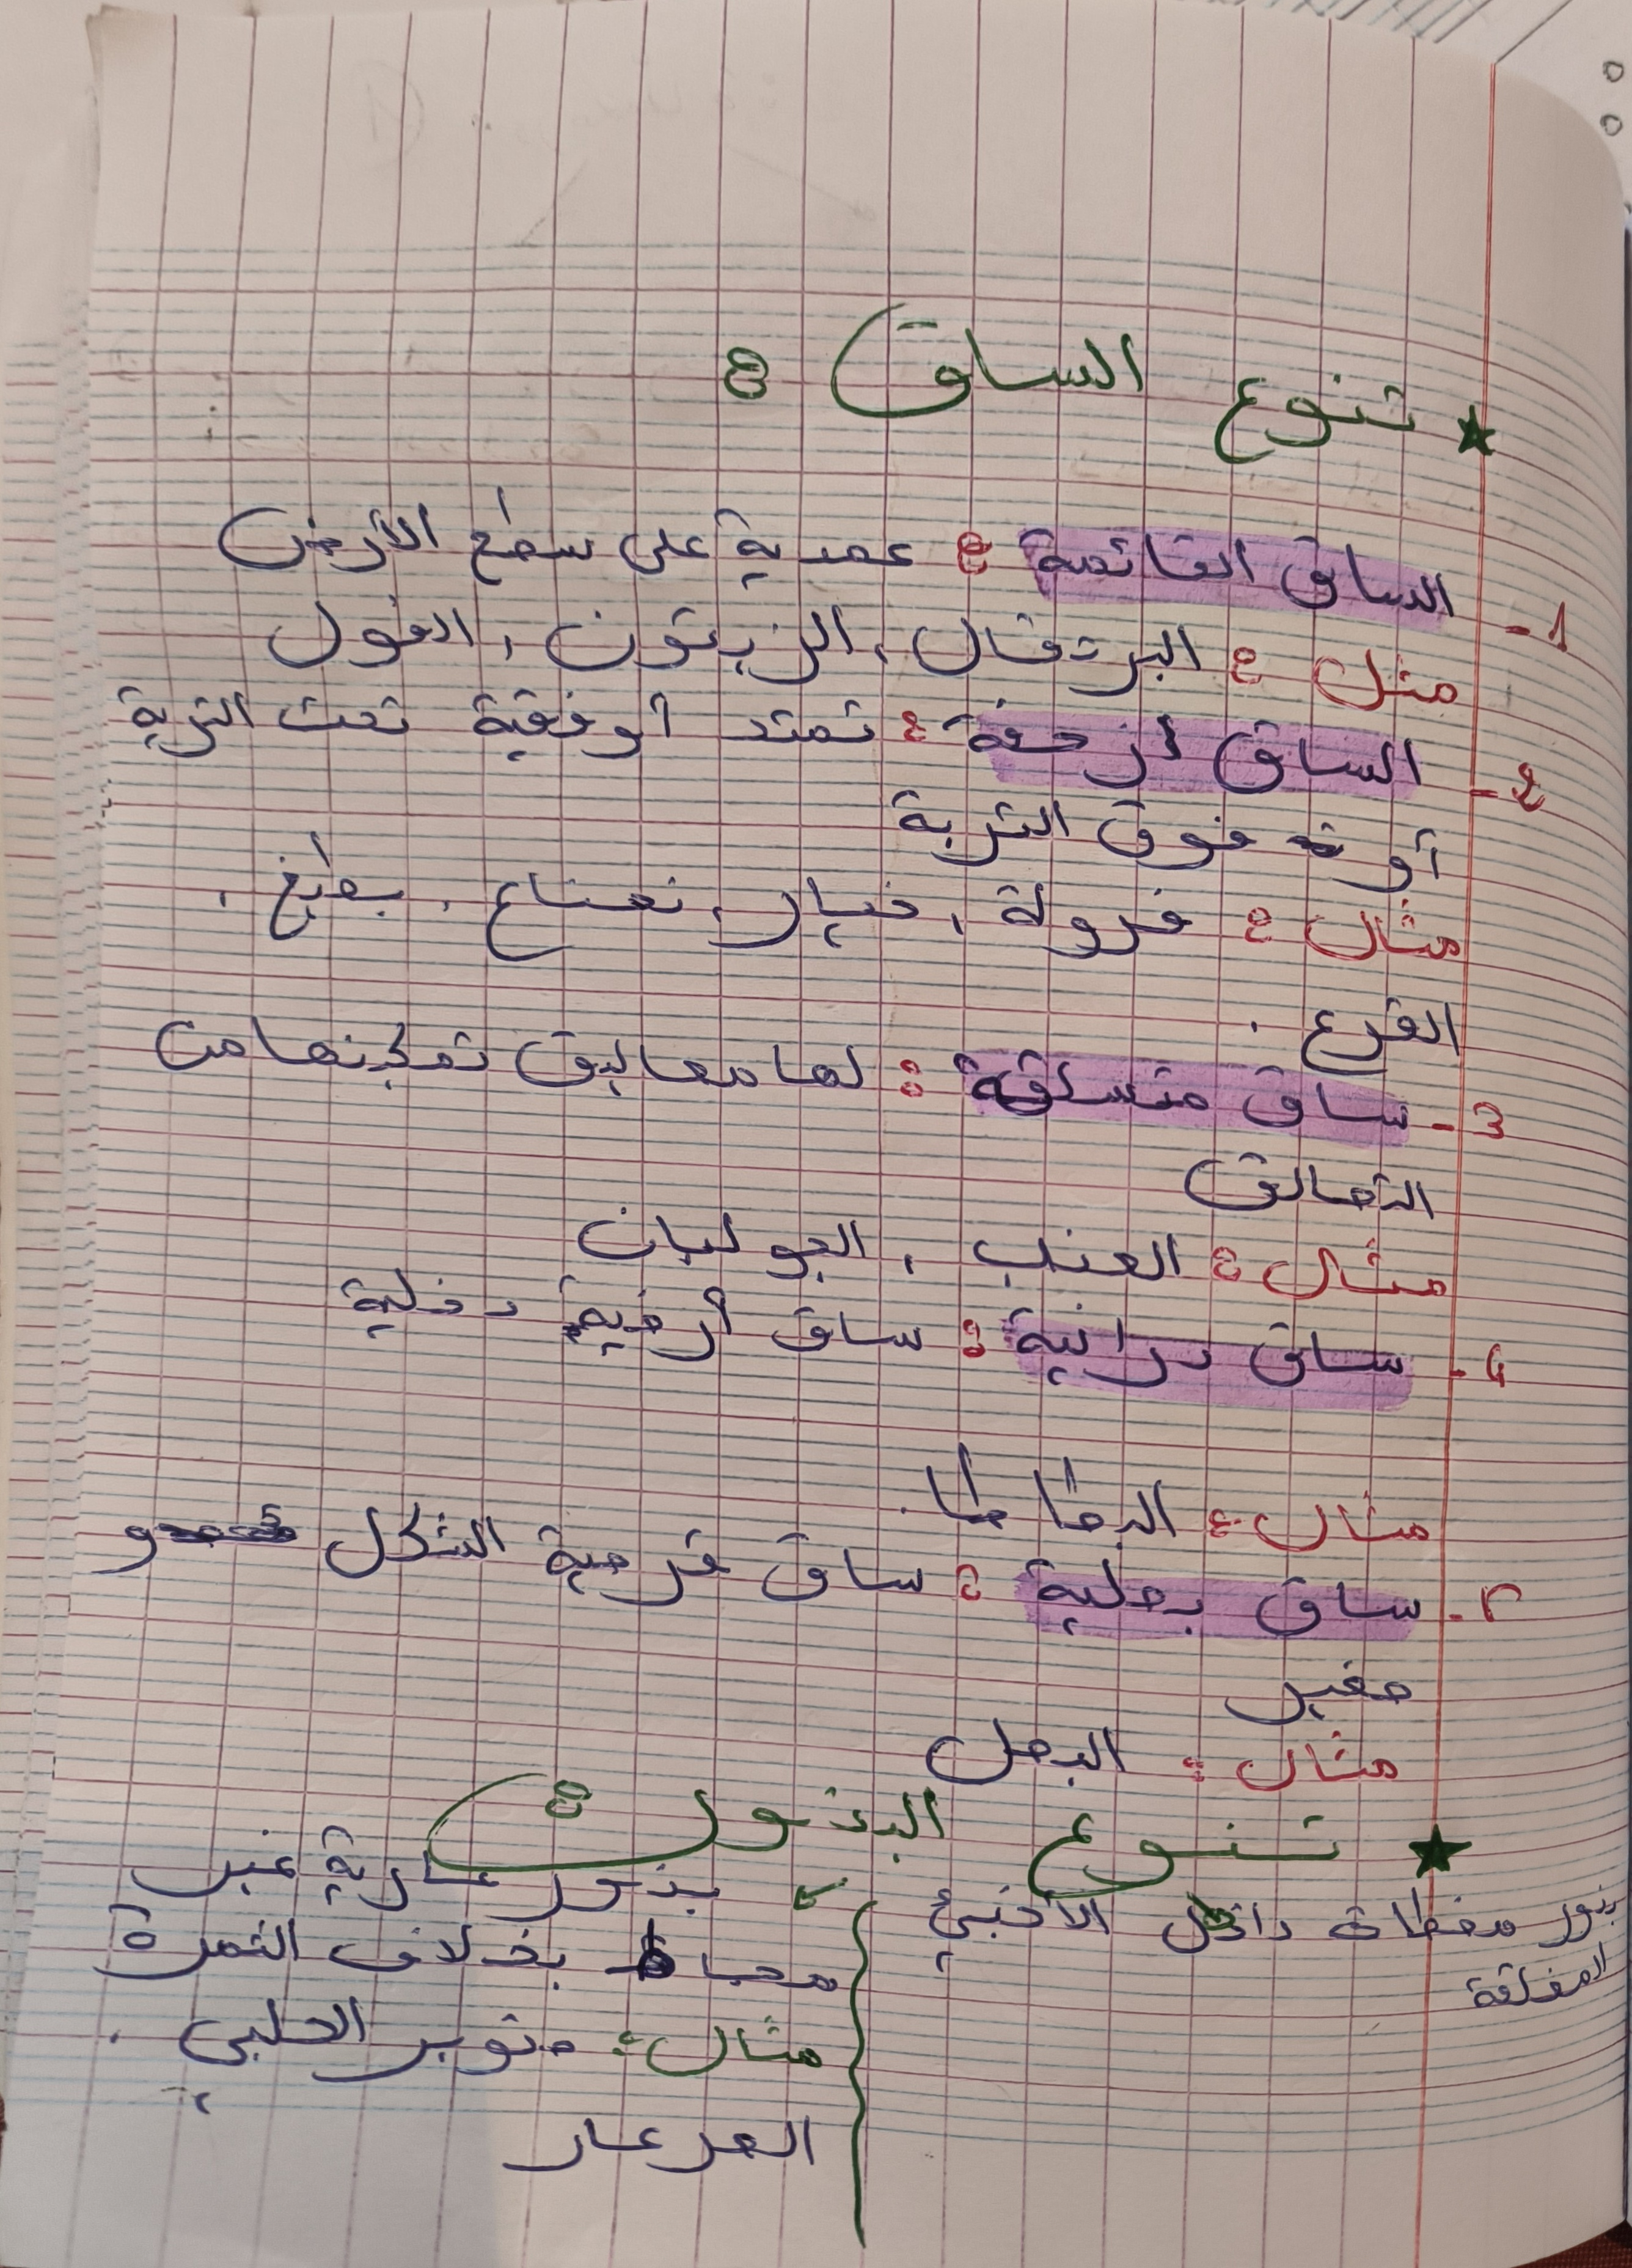 ★ تنوع الساق :
1- الساق القائمة : عمدية على سطح الأرض
مثل : البرتقال ، الزيتون ، الفول
2- الساق أزحفة : تمتد أوفقية تحت التربة
أو فوق التربة
مثال : فرولة ، خيار ، نعناع ، بطيخ ،
القرع .
3- ساق متسلقة : لها معاليق تمكنها من
التصالق
مثال : العنب ، الجو لبان
4- ساق درانية : ساق أرضية دخلية
مثال : البطاطا .
ساق بصلية : ساق قرصية الشكل و
صغير
مثال : البصل
★ تنوع البذور :
بذور مغطاة داخل الأخبئ
المغلقة
بذور عارية غير
محاط بخلاف الثمرة
مثال : صنوبر الحلبي .
العرعار